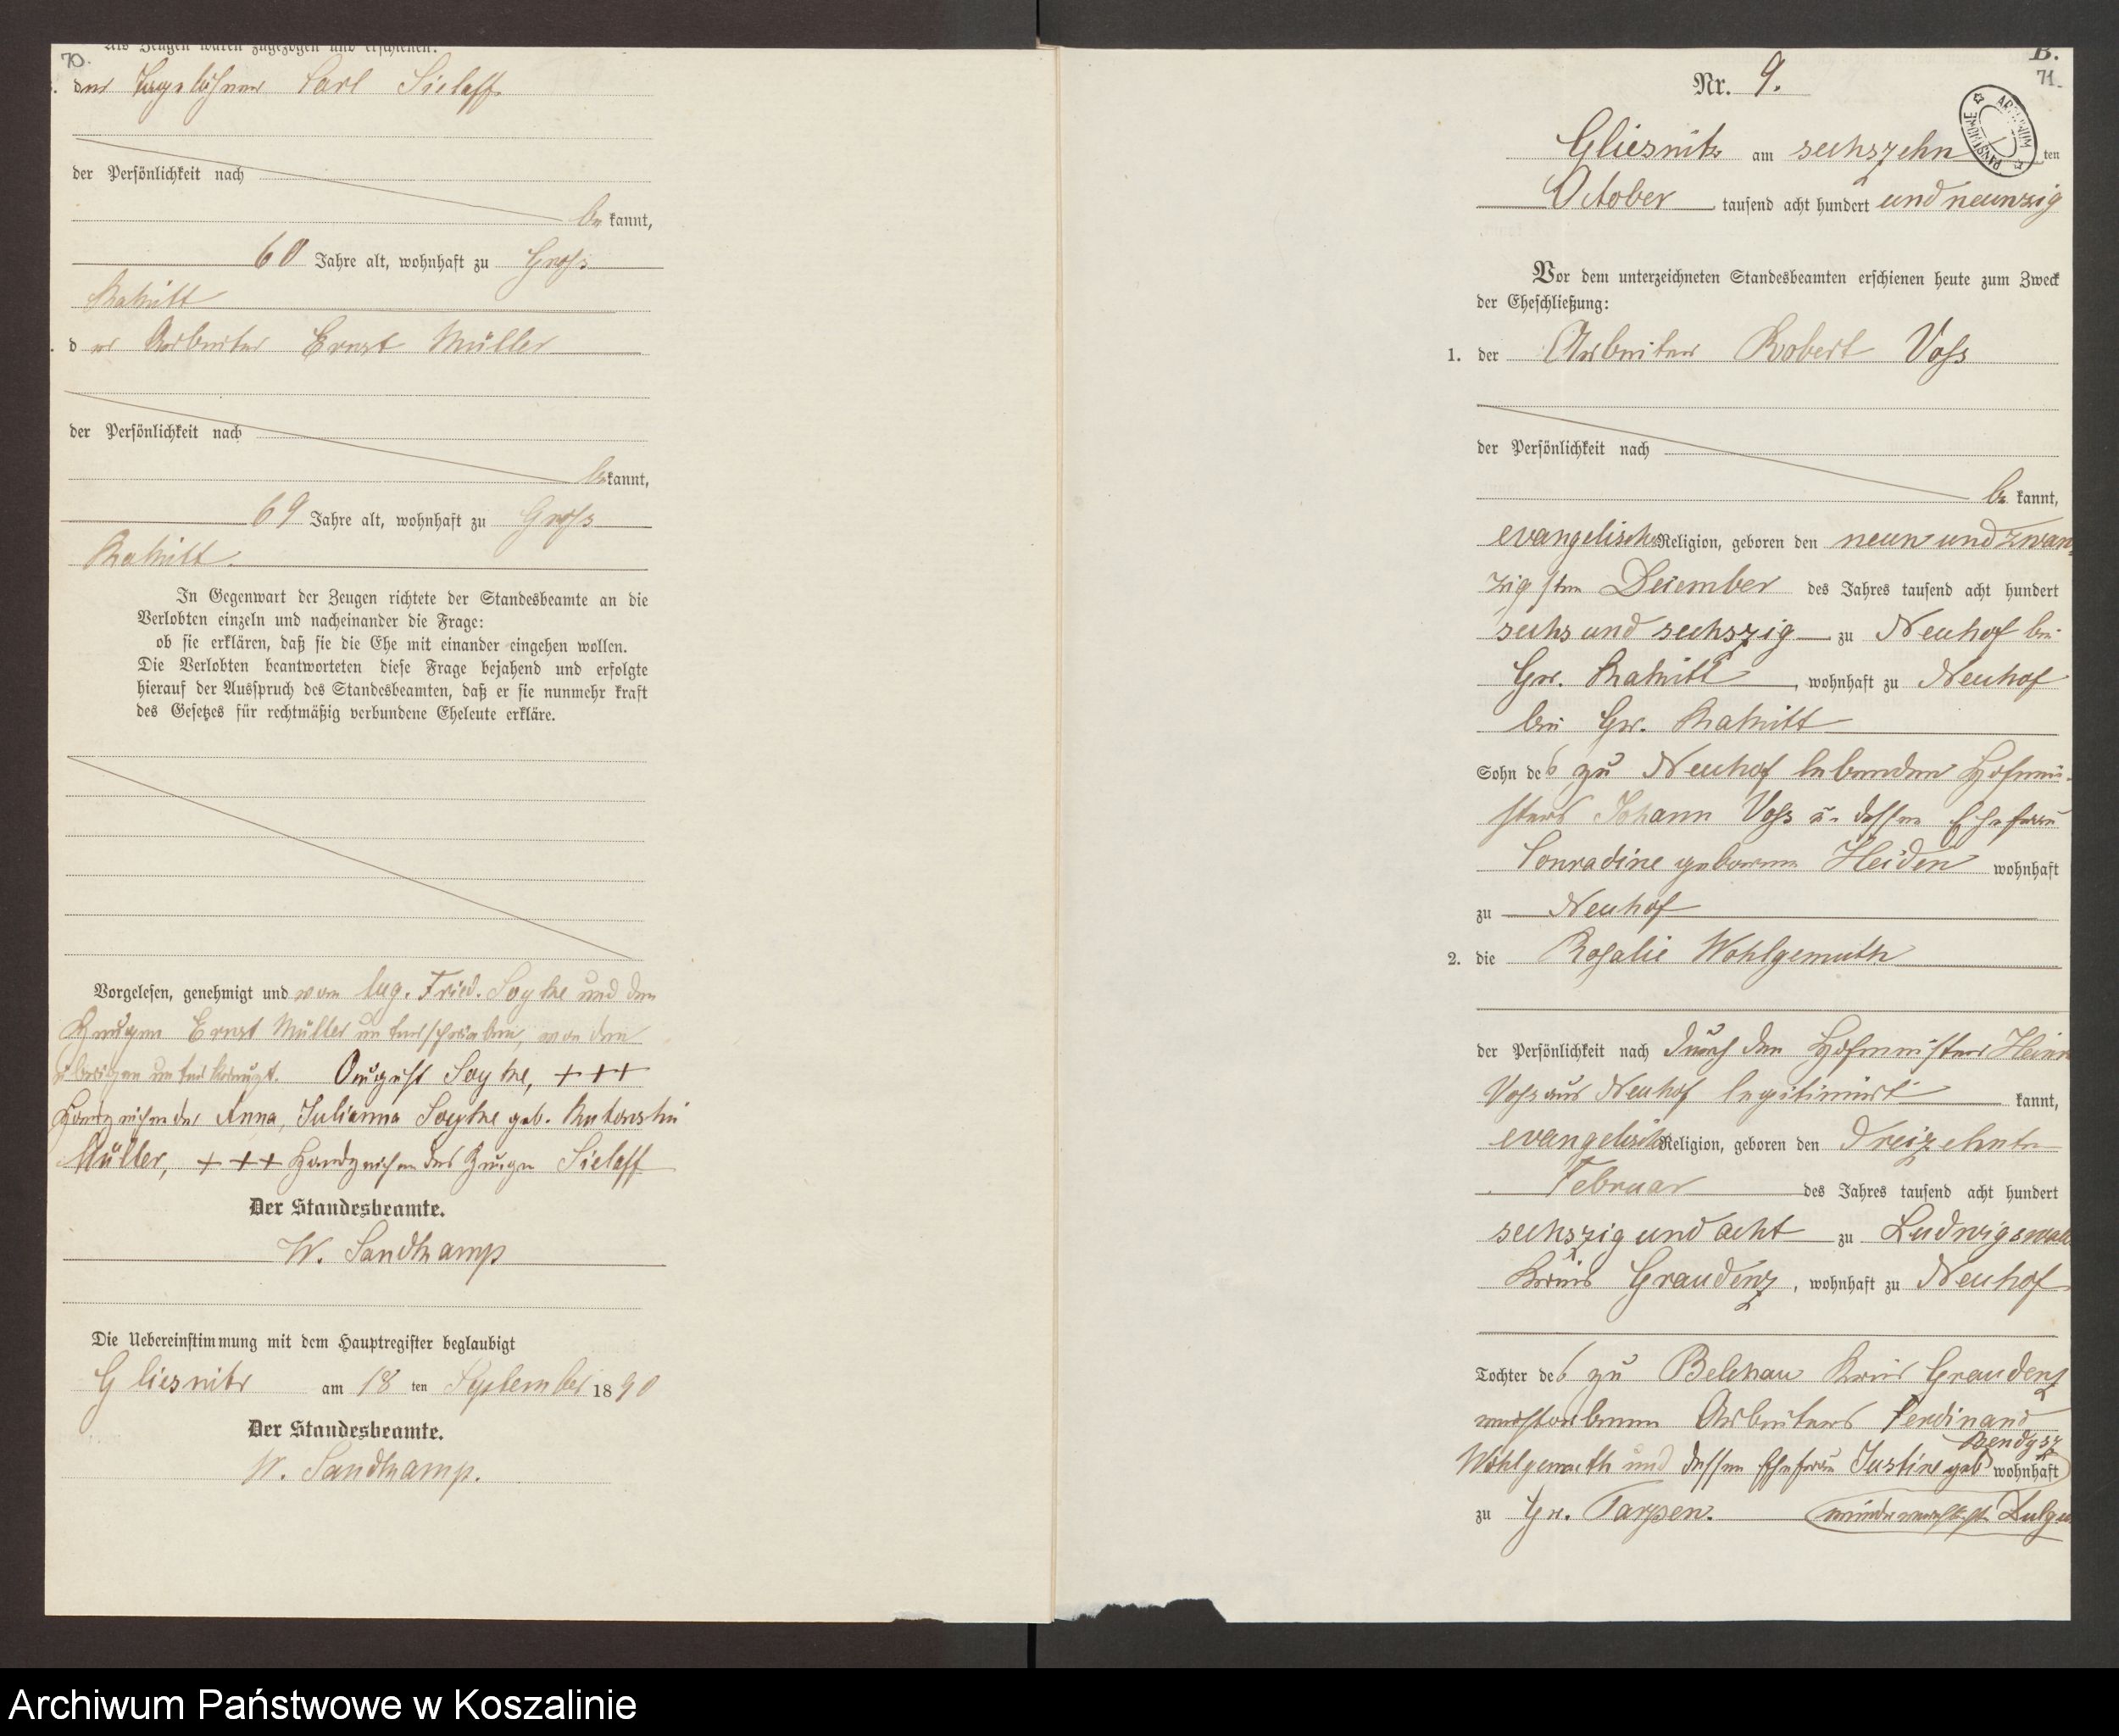 70.
Als Zeugen waren zugezogen und erschienen:
der Tagelöhner Carl Sielaff
der Persönlichkeit nach
be kannt,
60 Jahre alt, wohnhaft zu Gross
Rakitt
d er Arbeiter Ernst Müller
der Persönlichkeit nach
be kannt,
69 Jahre alt, wohnhaft zu Gross
Rakitt.
In Gegenwart der Zeugen richtete der Standesbeamte an die
Verlobten einzeln und nacheinander die Frage:
ob sie erklären, daß sie die Ehe mit einander eingehen wollen.
Die Verlobten beantworteten diese Frage bejahend und erfolgte
hierauf der Ausspruch des Standesbeamten, daß er sie nunmehr kraft
des Gesetzes für rechtmäßig verbundene Eheleute erkläre.
Vorgelesen, genehmigt und von Aug. Fried. Soyke und dem
Zeugen Ernst Müller unterschrieben, von den
übrigen unterkreuzt. August Soyke, +++
Handzeichen der Anna, Julianna Soyke geb.
Müller, +++ Handzeichen des Zeugen Sielaff
Der Standesbeamte.
W. Sandkamp
Die Uebereinstimmung mit dem Hauptregister beglaubigt
Gliesnitz am 18 ten September 1890
Der Standesbeamte.
W. Sandkamp.
B.
71.
Nr. 9.
ARCHIWUM PAŃSTWOWE
Gliesnitz am sechszehn ten
October tausend acht hundert und neunzig
Vor dem unterzeichneten Standesbeamten erschienen heute zum Zweck
der Eheschließung:
1. der Arbeiter Robert Voss
der Persönlichkeit nach
be kannt,
evangelischer Religion, geboren den neun und zwan-
zigsten Dezember des Jahres tausend acht hundert
sechs und sechszig zu Neuhof bei
Gr. Rakitt, wohnhaft zu Neuhof
bei Gr. Rakitt
Sohn des zu Neuhof lebenden Hofmei-
sters Johann Voss u. dessen Ehefrau
Conradine geborene Heiden wohnhaft
zu Neuhof
2. die Rosalie Wohlgemuth
der Persönlichkeit nach durch den Hofmeister Heinr
Voss aus Neuhof legitimirt kannt,
evangelischer Religion, geboren den dreizehnten
Februar des Jahres tausend acht hundert
sechszig und acht zu Ludwigswald
Kreis Graudenz, wohnhaft zu Neuhof
Tochter des zu Belchau Kreis Graudenz
verstorbenen Arbeiters Ferdinand
Wohlgemuth und dessen Ehefrau Justine geb wohnhaft
zu Gr. Tarpen.
Archiwum Państwowe w Koszalinie